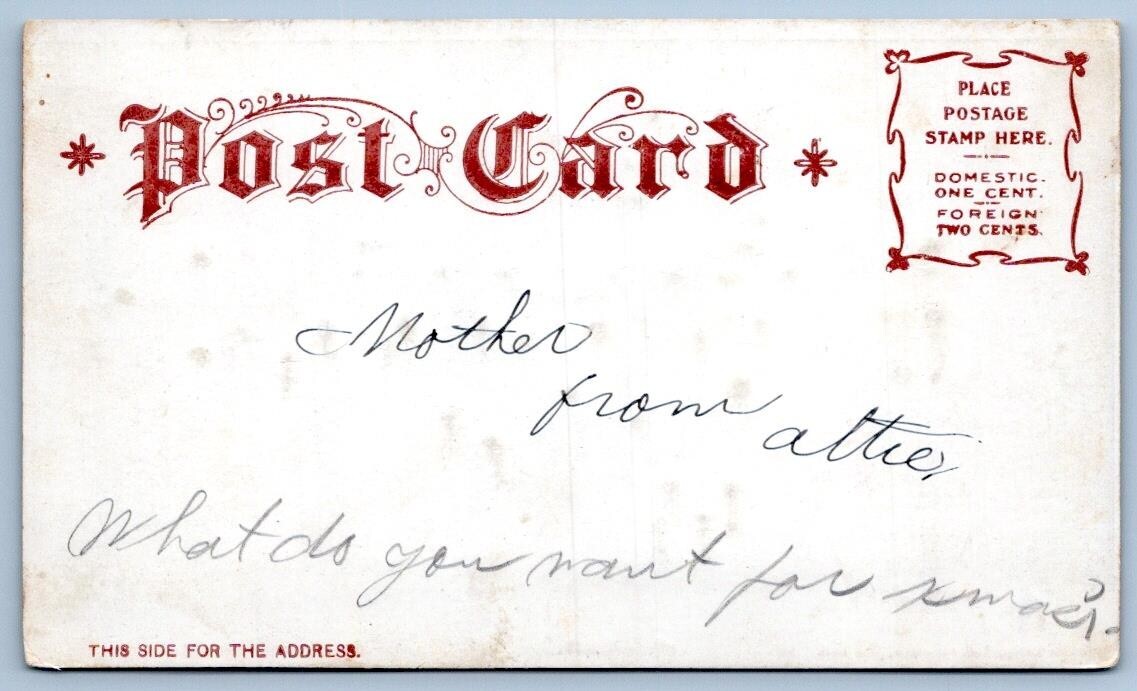 Post Card
PLACE
POSTAGE
STAMP HERE.
DOMESTIC.
ONE CENT.
FOREIGN
TWO CENTS.
Mother
from attie,
What do you want for xmas?
THIS SIDE FOR THE ADDRESS.